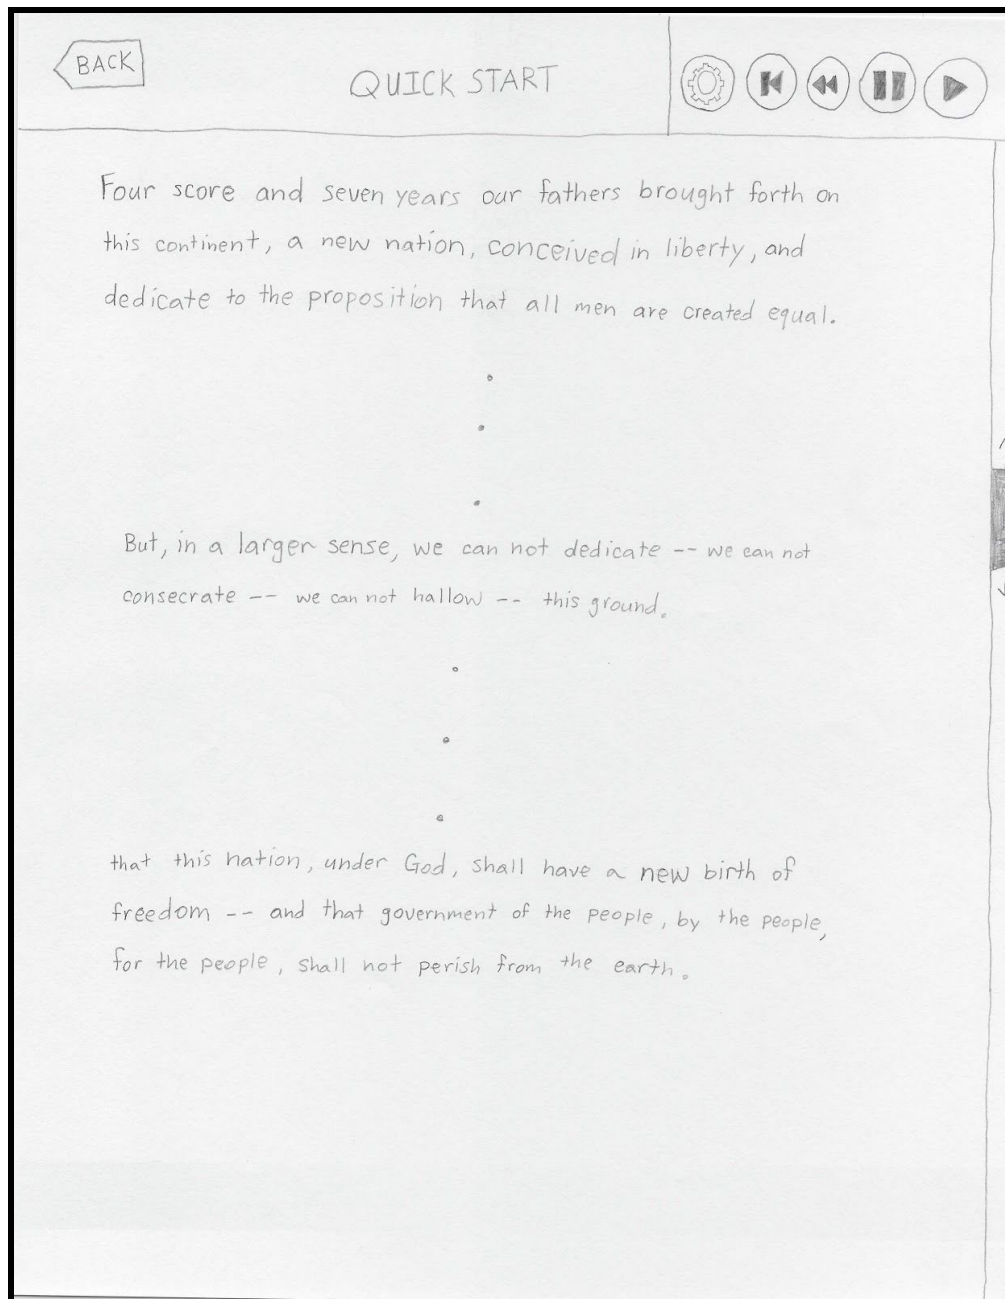 BACK
QUICK START
Four score and seven years our fathers brought forth on
this continent, a new nation, conceived in liberty, and
dedicate to the proposition that all men are created equal.
But, in a larger sense, we can not dedicate -- we can not
consecrate -- we can not hallow -- this ground.
that this nation, under God, shall have a new birth of
freedom -- and that government of the people, by the people,
for the people, shall not perish from the earth.